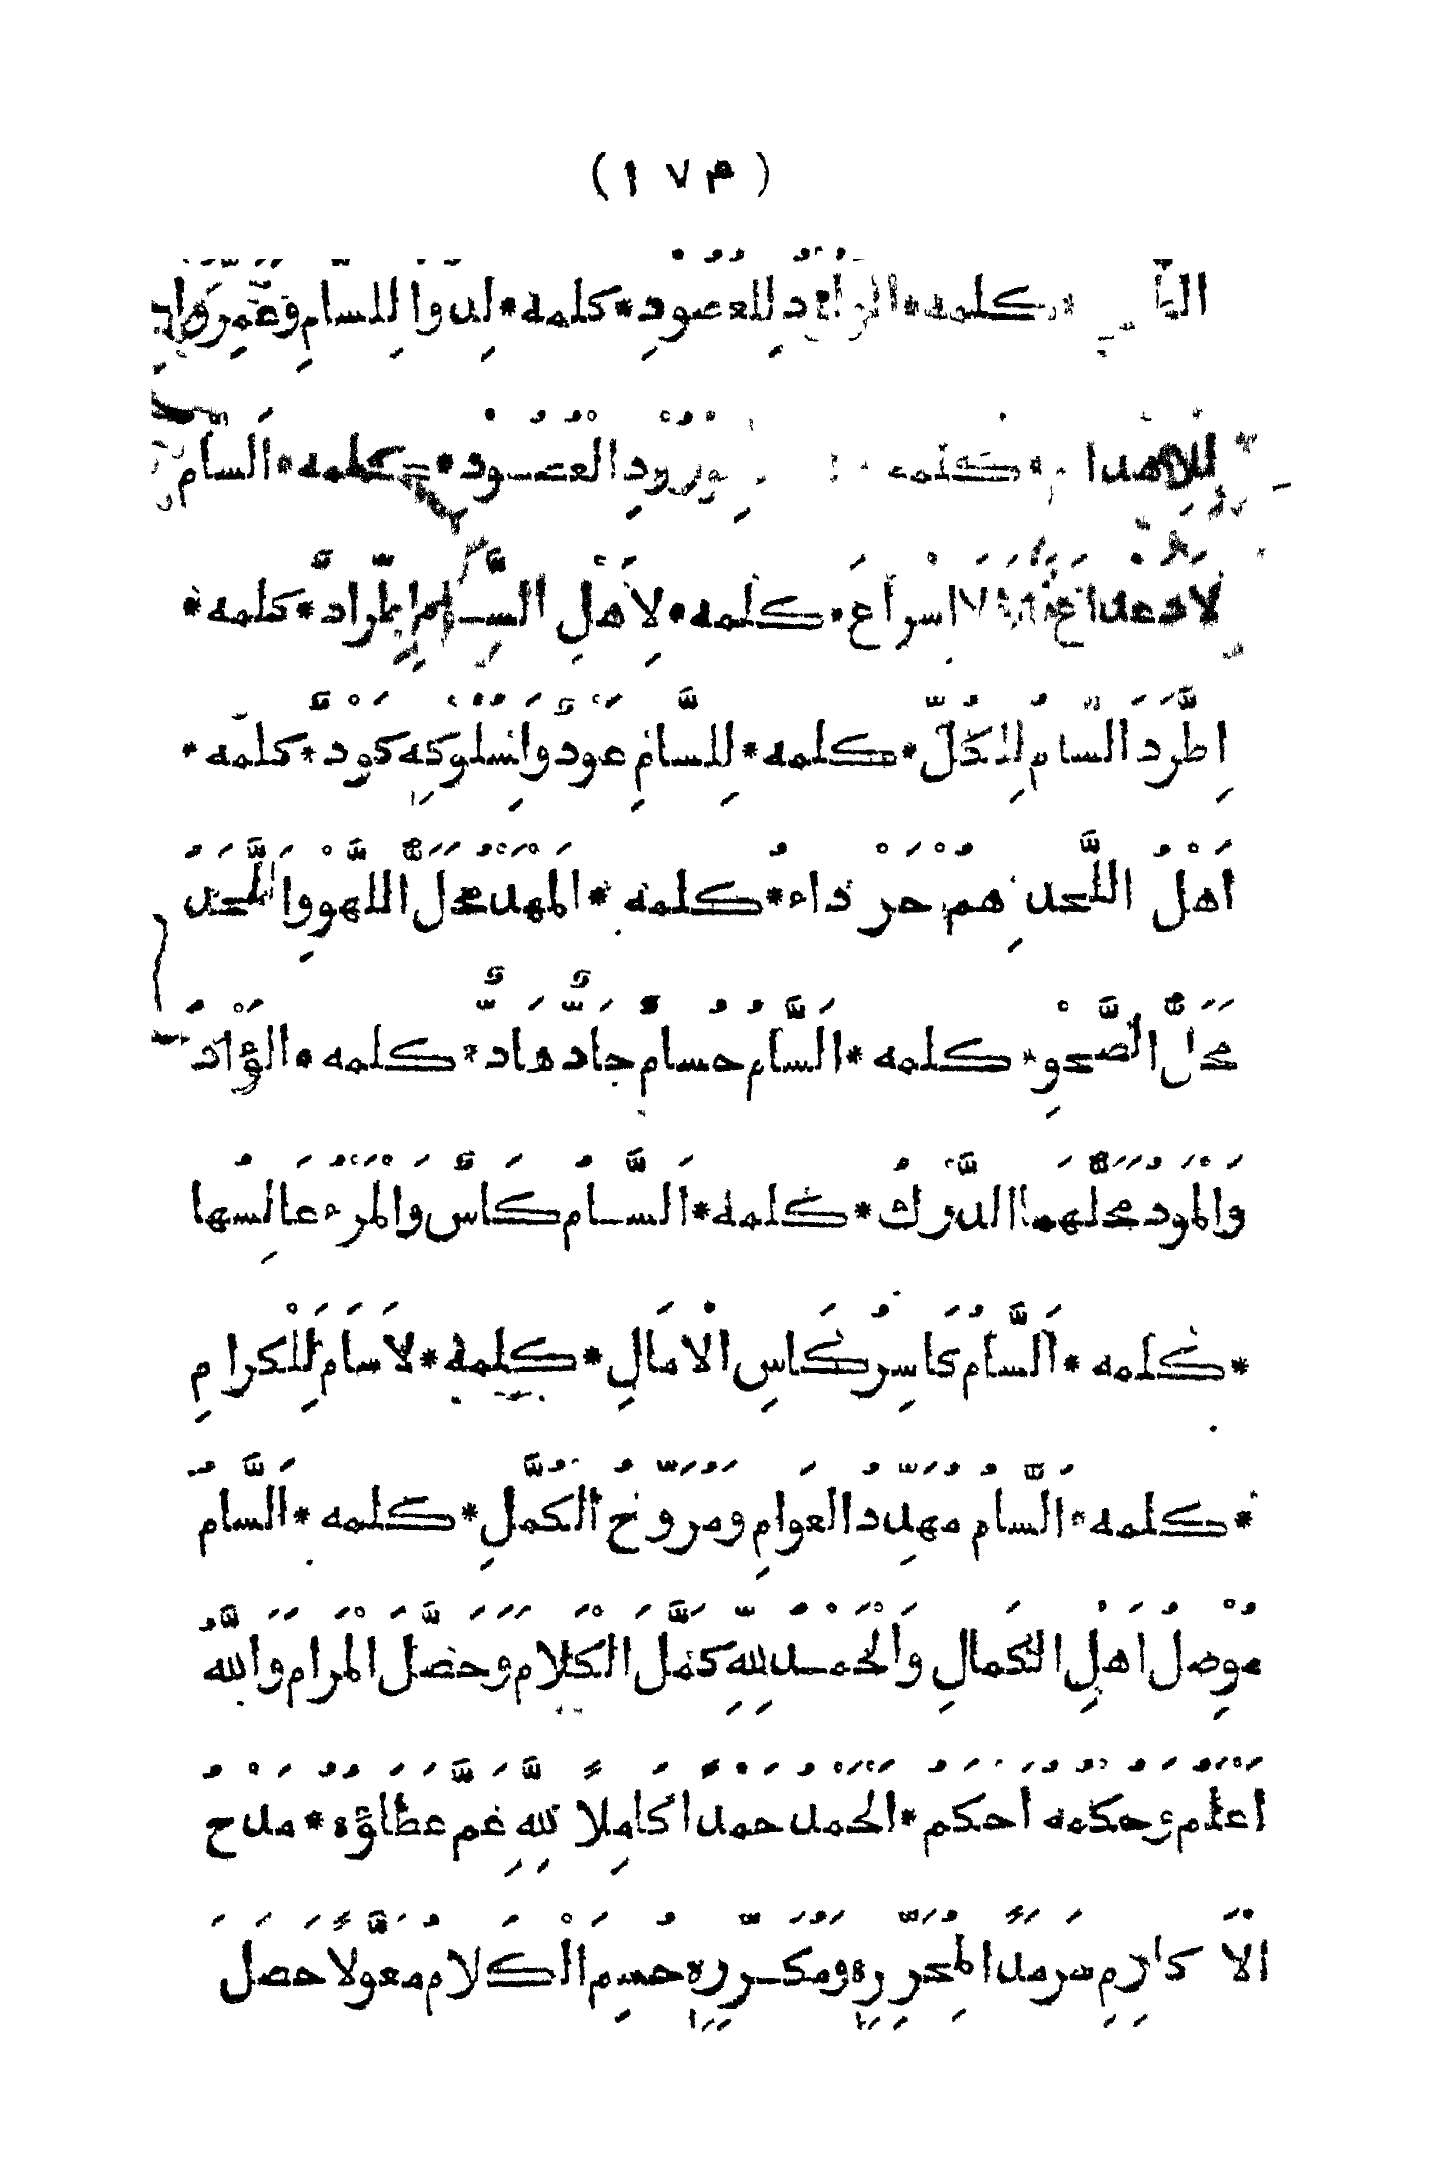 (١٧٣)
كلمه * المرأ د للعصود * كلمه * لدوا للسام وعمروا
للاهدا * كلمه ورود العصود * كلمه * السام
لا اسراع * كلمه * لاهل السام اطراد * كلمه *
اطرد السام للكل * كلمه * للسام عود وانسلوكه كود * كلمه *
اهل اللحد هم حر داء * كلمه * المهد محل اللهو واللحد
محل الصحو * كلمه * السام حسام جاد هاد * كلمه * الوأد
والمود محلهما الدرك * كلمه * السام كاس والمرء عالسها
* كلمه * السام كاسر كاس الامال * كلمه * لا سام للكرام
* كلمه * السام مهدد العوام ومروح الكمل * كلمه * السام
موصل اهل الكمال والحمد لله كمل الكلام وحصل المرام والله
اعلم وحكمه احكم * الحمد حمدا كاملا لله عم عطاؤه * مدح
الاكارم سرمدا لمحرره ومكرره حسم الكلام معولا حصل